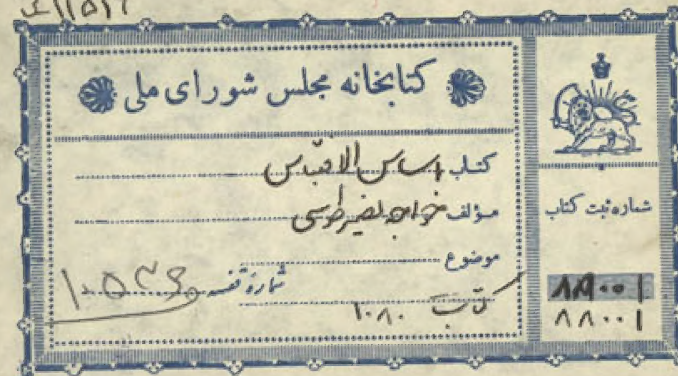 کتابخانه مجلس شورای ملی
کتاب اساس الاقتباس
مؤلف خواجه نصیر طوسی
موضوع
شماره قفسه
کاتب ۱۰۸۰
شماره ثبت کتاب
۸۸۰۰۱